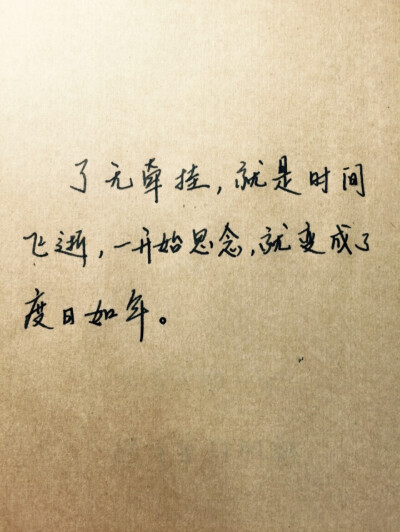 了无牵挂，就是时间
飞逝，一开始思念，就变成了
度日如年。